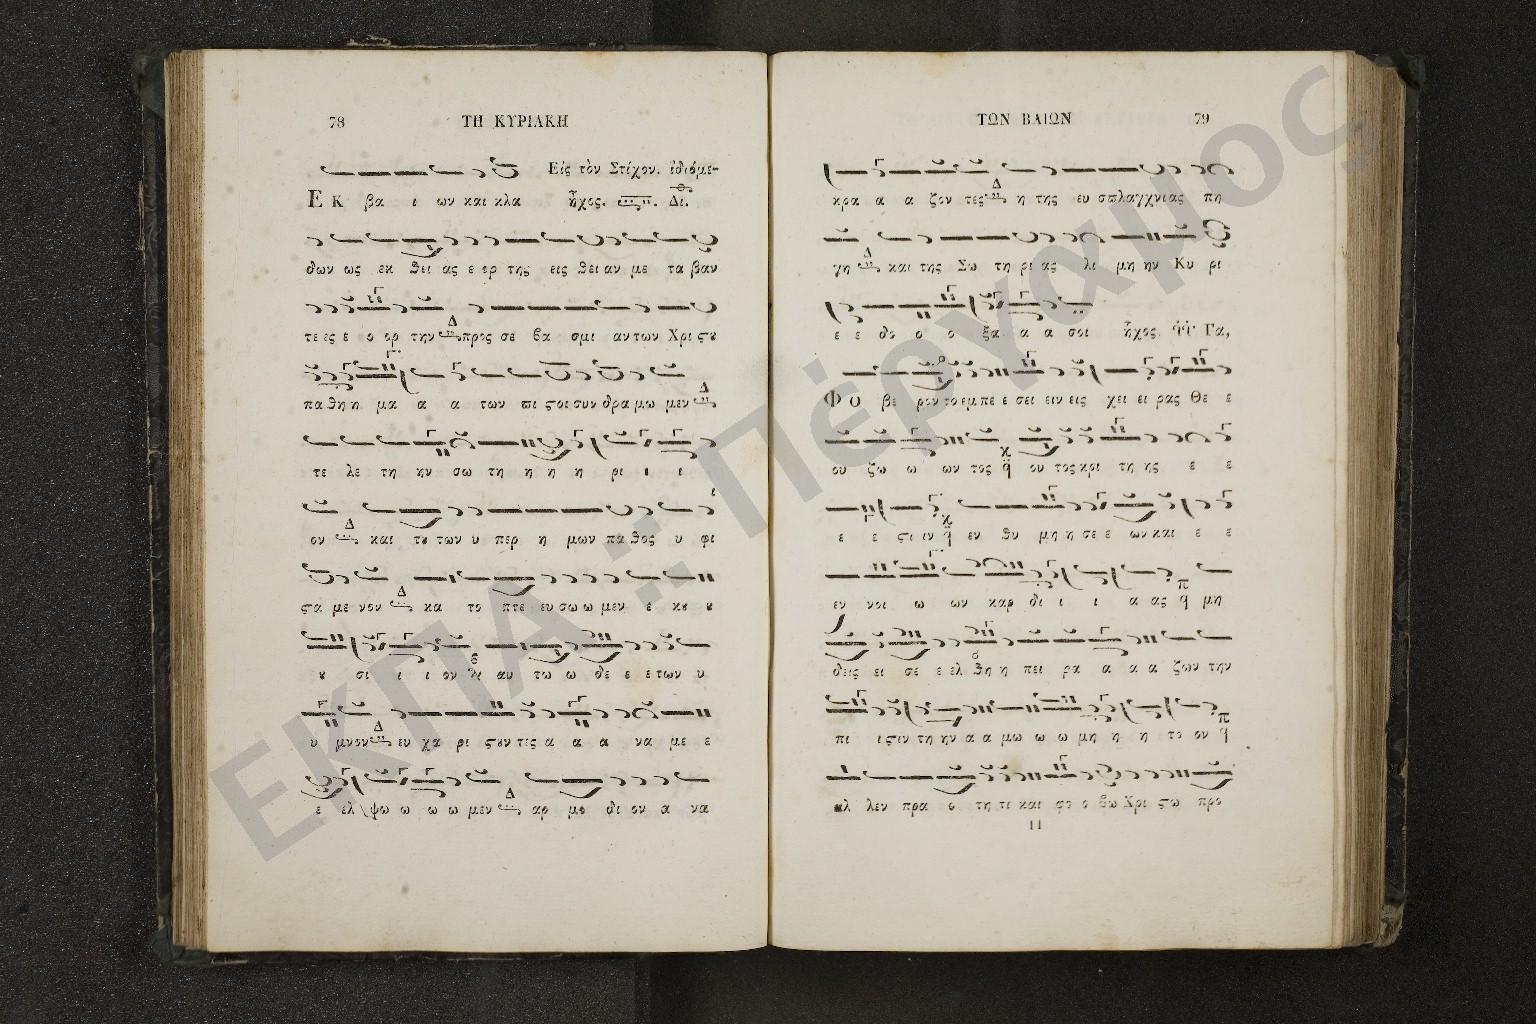 78 ΤΗ ΚΥΡΙΑΚΗ
Εἰς τὸν Στίχον. ἰδιόμε-
Εκ βα ι ων και κλα ἦχος. Δι.
δων ως εκ θει ας ε ορ της εις θει αν με τα βαν
τε ες ε ο ορ την Δ προς σε βα σμι αν των Χρι ϛȣ
πα θη η μα α α των πι ϛοι συν δρα μω μεν Δ
τε λε τη ην σω τη η η η ρι ι ι
ον Δ και τȣ των υ περ η μων πα θος υ φι
ϛα με νον Δ κα το πτε ευ σω ω μεν ε κȣ ȣ
ȣ σι ι ι ον αυ τω ω δε ε ε των υ
υ μνον Δ ευ χα ρι ϛȣν τες α α α να με ε
ε ελ ψω ω ω ω μεν Δ αρ μο δι ον α να
ΤΩΝ ΒΑΙΩΝ 79
κρα α α ζον τες Δ η της ευ σπλαγχνιας πη
γη Δ και της Σω τη ρι ας λι μη ην Κυ ρι
ε ε δο ο ο ξα α α σοι ἦχος Γα,
Φο βε ρον το εμ πε ε σει ειν εις χει ει ρας Θε ε
ου ζω ω ων τος ου τος κρι τη ης ε ε
ε ε ϛι ιν εν θυ μη η σε ε ων και ε ε
εν νοι ω ων καρ δι ι ι α ας μη
δεις ει σε ε ελ θη η πει ρα α α α ζων την
πι ι ϛιν τη ην α α μω ω ω μη η η το ον
αλ λεν πρα ο τη τι και φο ο βω Χρι ϛω προ
11
ΕΚΠΑ :: Πέργαμος